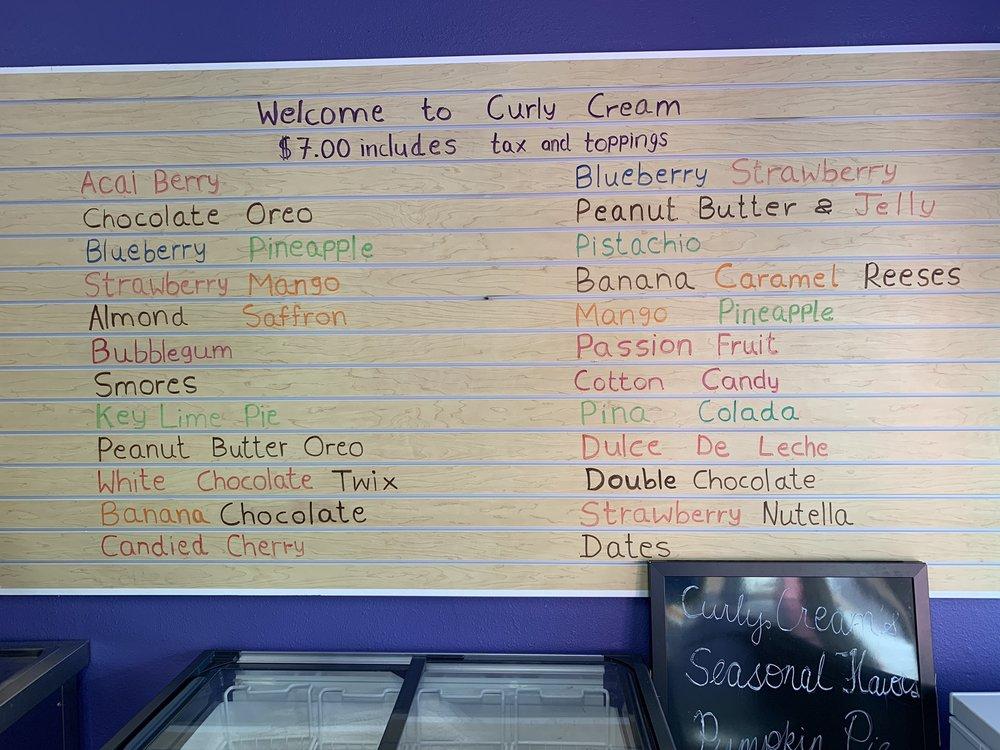 Welcome to Curly Cream
$7.00 includes tax and toppings
Acai Berry
Chocolate Oreo
Blueberry Pineapple
Strawberry Mango
Almond Saffron
Bubblegum
Smores
Key Lime Pie
Peanut Butter Oreo
White Chocolate Twix
Banana Chocolate
Candied Cherry
Blueberry Strawberry
Peanut Butter & Jelly
Pistachio
Banana Caramel Reeses
Mango Pineapple
Passion Fruit
Cotton Candy
Pina Colada
Dulce De Leche
Double Chocolate
Strawberry Nutella
Dates
Curly Cream's
Seasonal Flavors
Pumpkin Pie